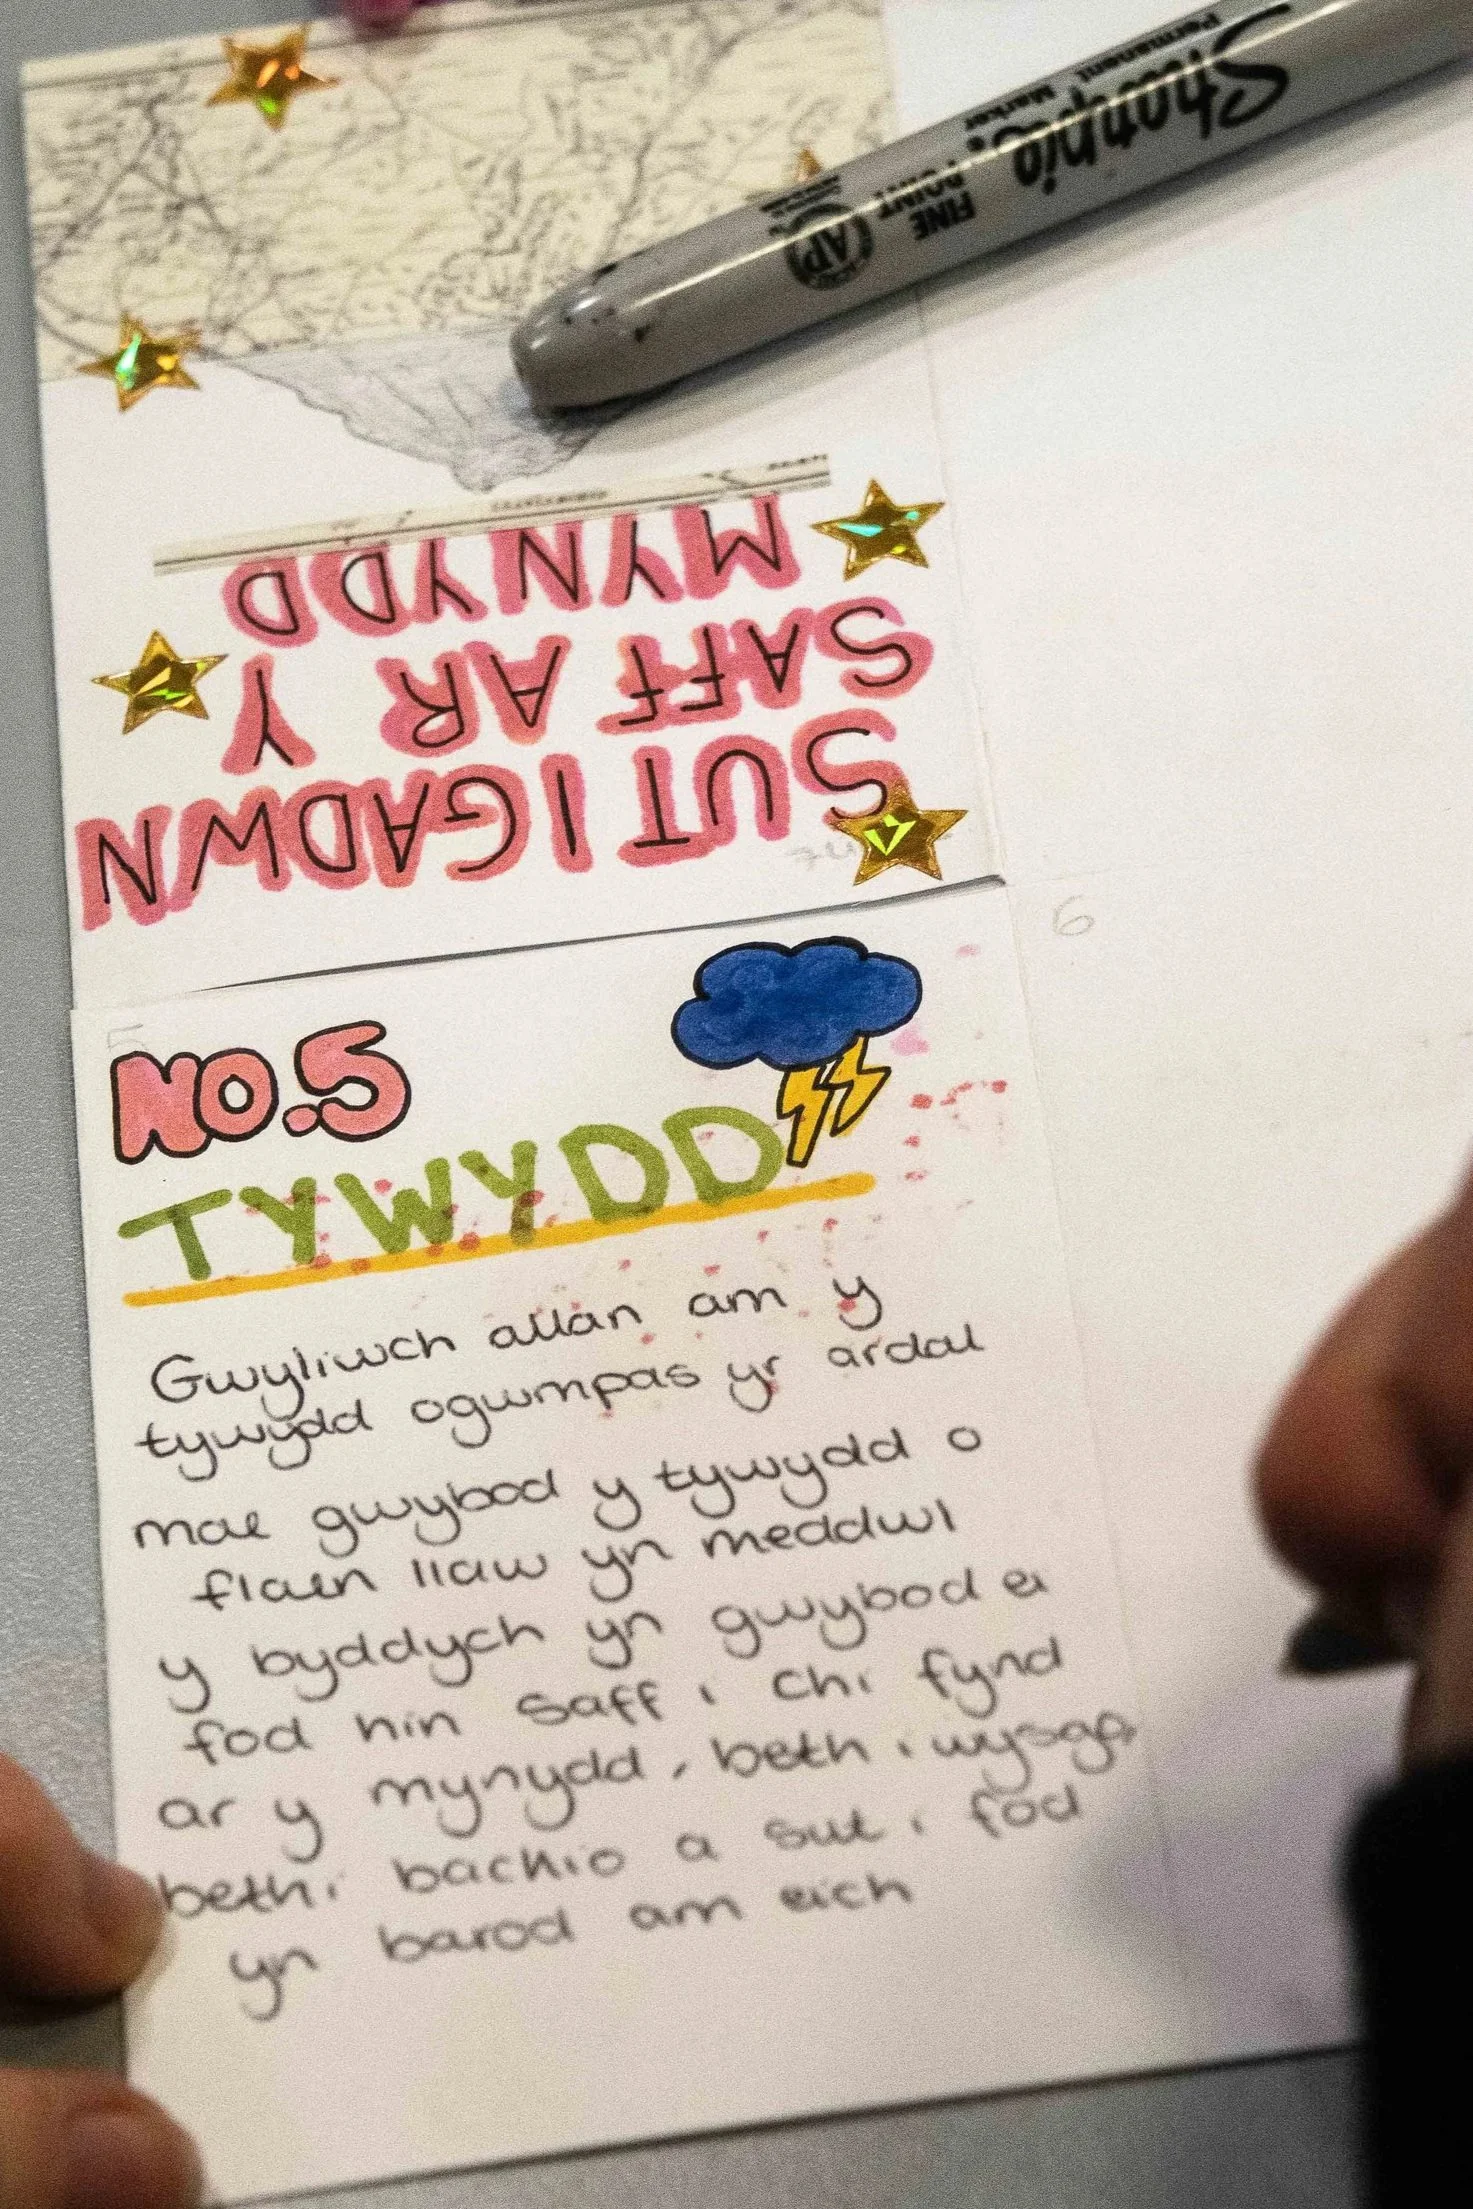 Sharpie.
Permanent
Marker
FINE
POINT
AP
SUT I GADWN
SAFF AR Y
MYNYDD
6
5
NO.5
TYWYDD
Gwyliwch allan am y
tywydd ogwmpas yr ardal
mae gwybod y tywydd o
flaen llaw yn meddwl
y byddych yn gwybod ei
fod hin saff i chi fynd
ar y mynydd, beth i wysgo,
beth i bachio a sut i fod
yn barod am eich